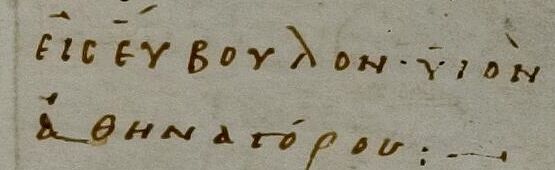 εἰς εὔβουλον· υἱὸν
ἀθηναγόρου :—